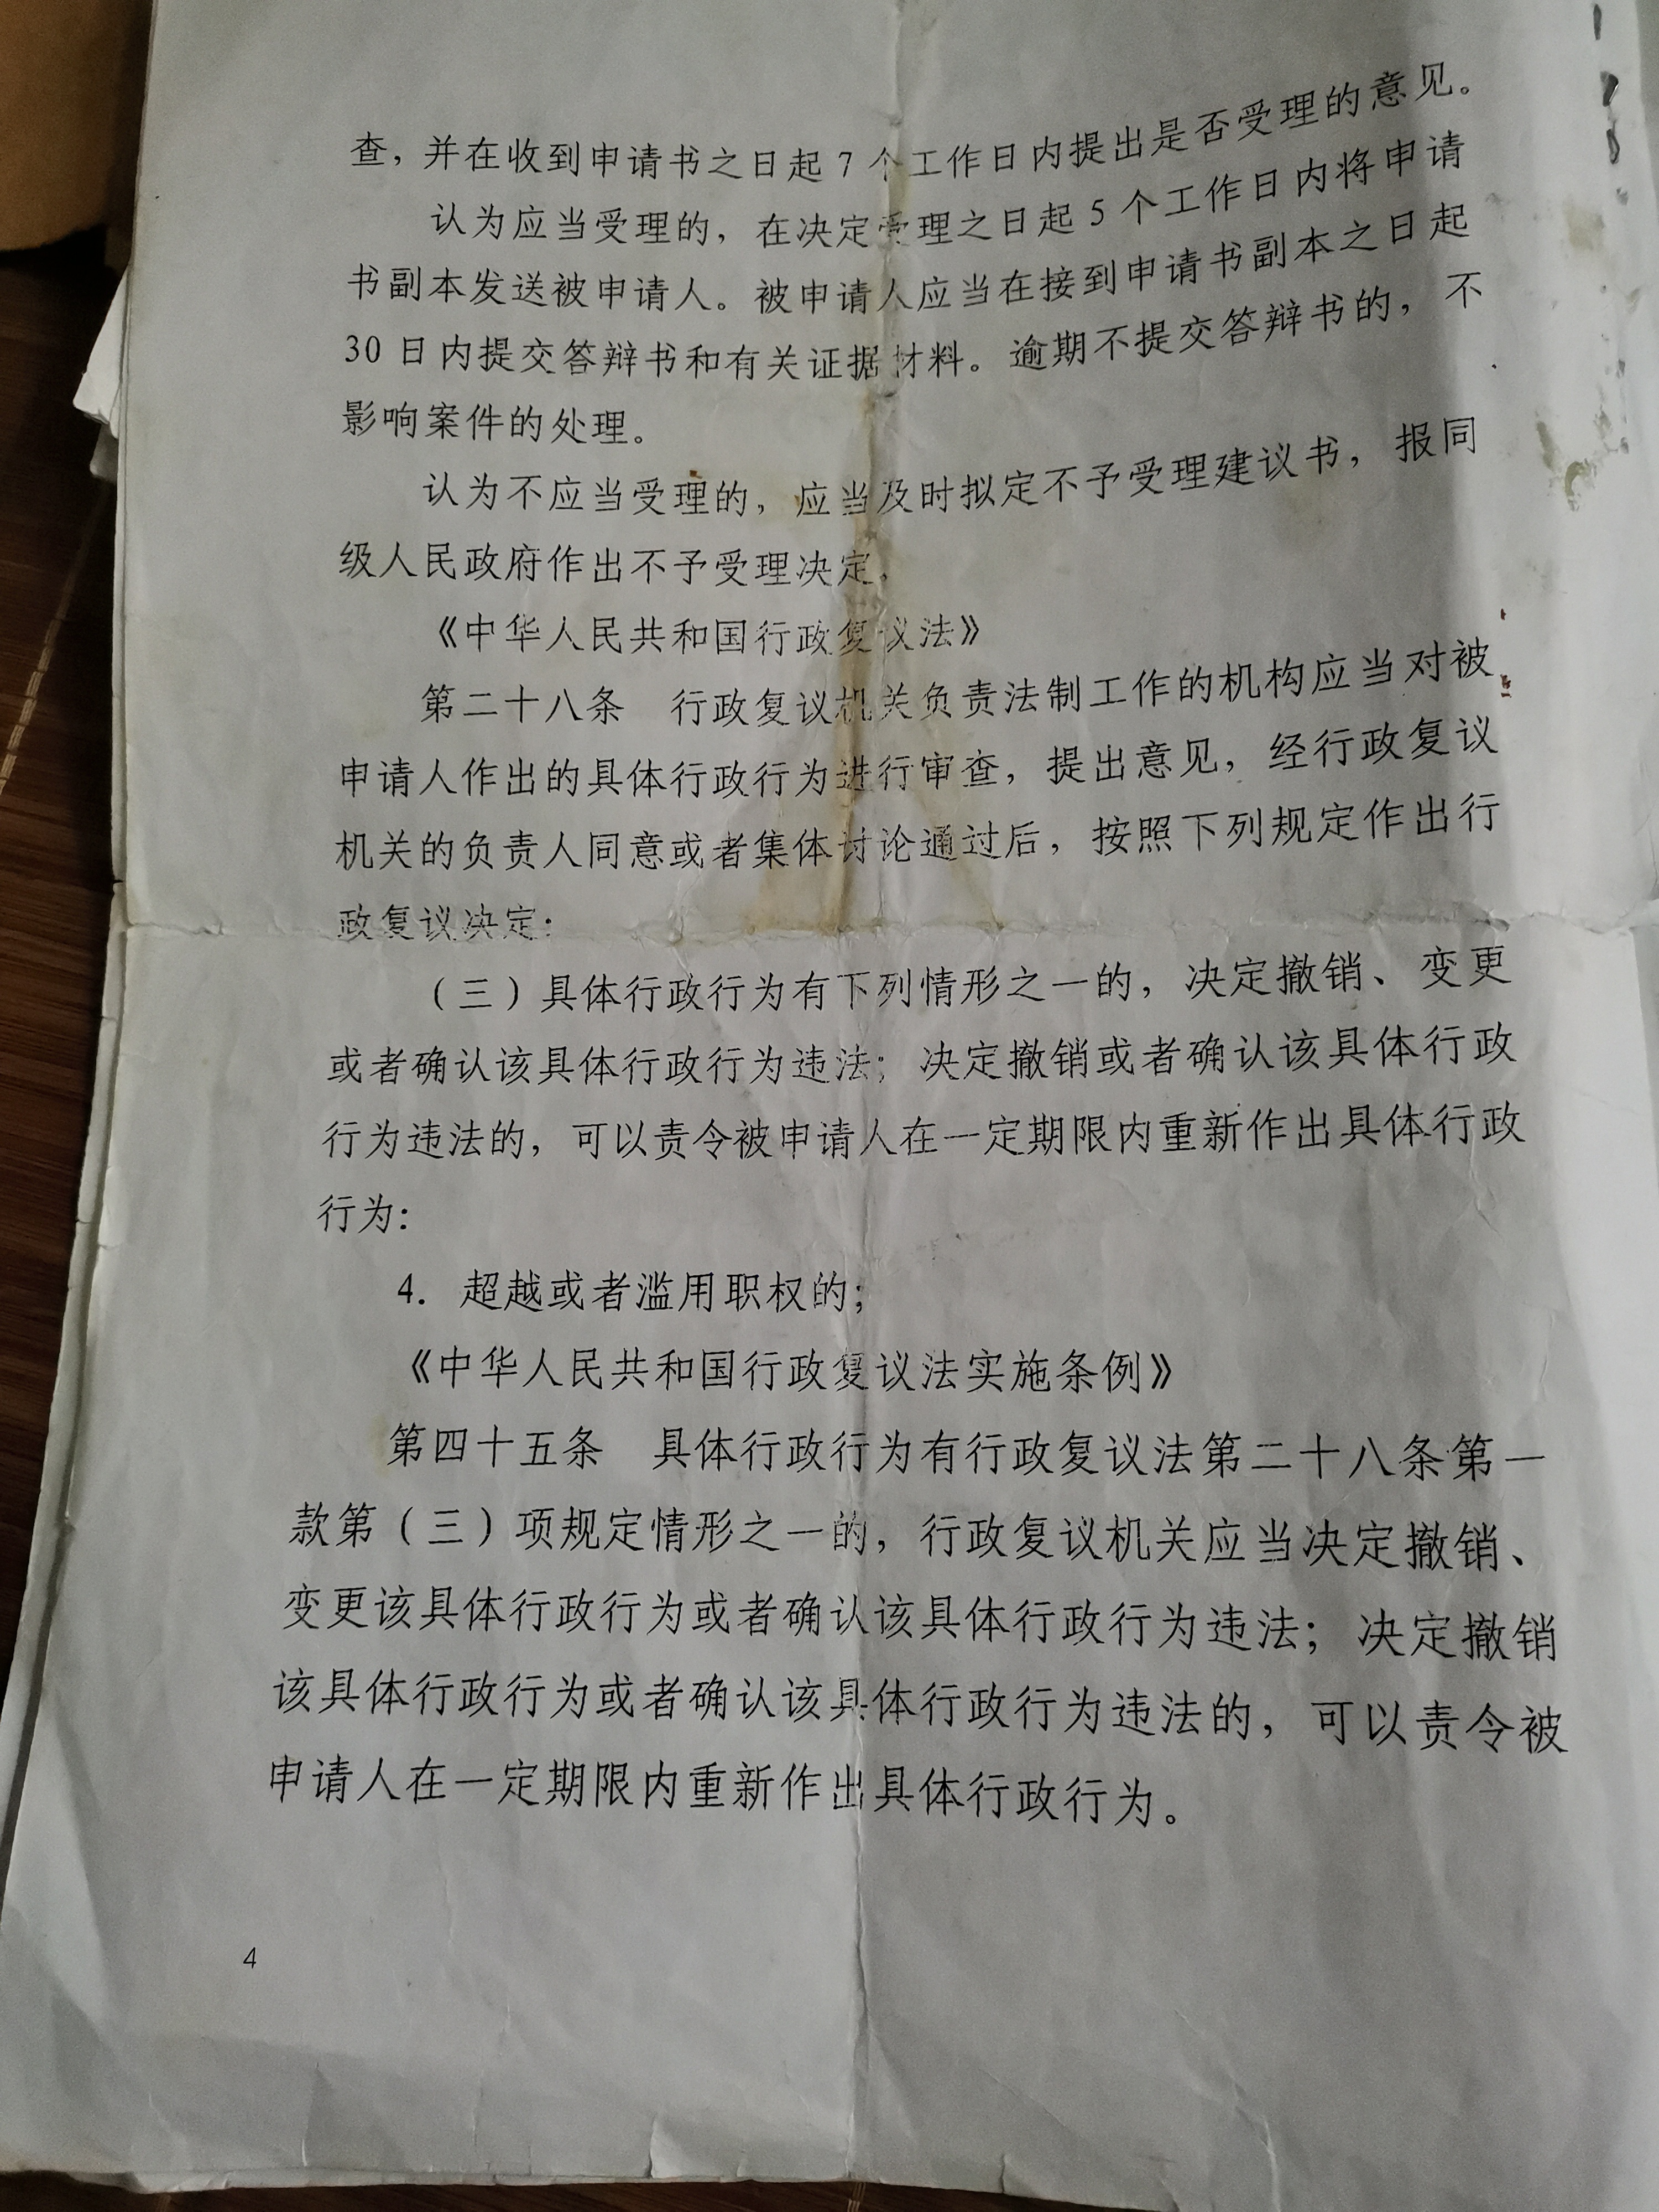 查，并在收到申请书之日起 7 个工作日内提出是否受理的意见。
认为应当受理的，在决定受理之日起 5 个工作日内将申请
书副本发送被申请人。被申请人应当在接到申请书副本之日起
30 日内提交答辩书和有关证据材料。逾期不提交答辩书的，不
影响案件的处理。
认为不应当受理的，应当及时拟定不予受理建议书，报同
级人民政府作出不予受理决定。
《中华人民共和国行政复议法》
第二十八条　行政复议机关负责法制工作的机构应当对被
申请人作出的具体行政行为进行审查，提出意见，经行政复议
机关的负责人同意或者集体讨论通过后，按照下列规定作出行
政复议决定：
（三）具体行政行为有下列情形之一的，决定撤销、变更
或者确认该具体行政行为违法；决定撤销或者确认该具体行政
行为违法的，可以责令被申请人在一定期限内重新作出具体行政
行为：
4. 超越或者滥用职权的；
《中华人民共和国行政复议法实施条例》
第四十五条　具体行政行为有行政复议法第二十八条第一
款第（三）项规定情形之一的，行政复议机关应当决定撤销、
变更该具体行政行为或者确认该具体行政行为违法；决定撤销
该具体行政行为或者确认该具体行政行为违法的，可以责令被
申请人在一定期限内重新作出具体行政行为。
4